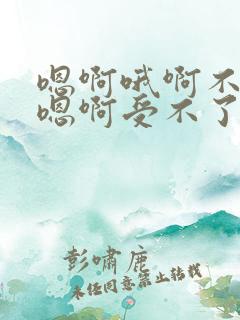 嗯啊哦啊不
嗯啊受不了
彭啸鹿
未经同意禁止转载